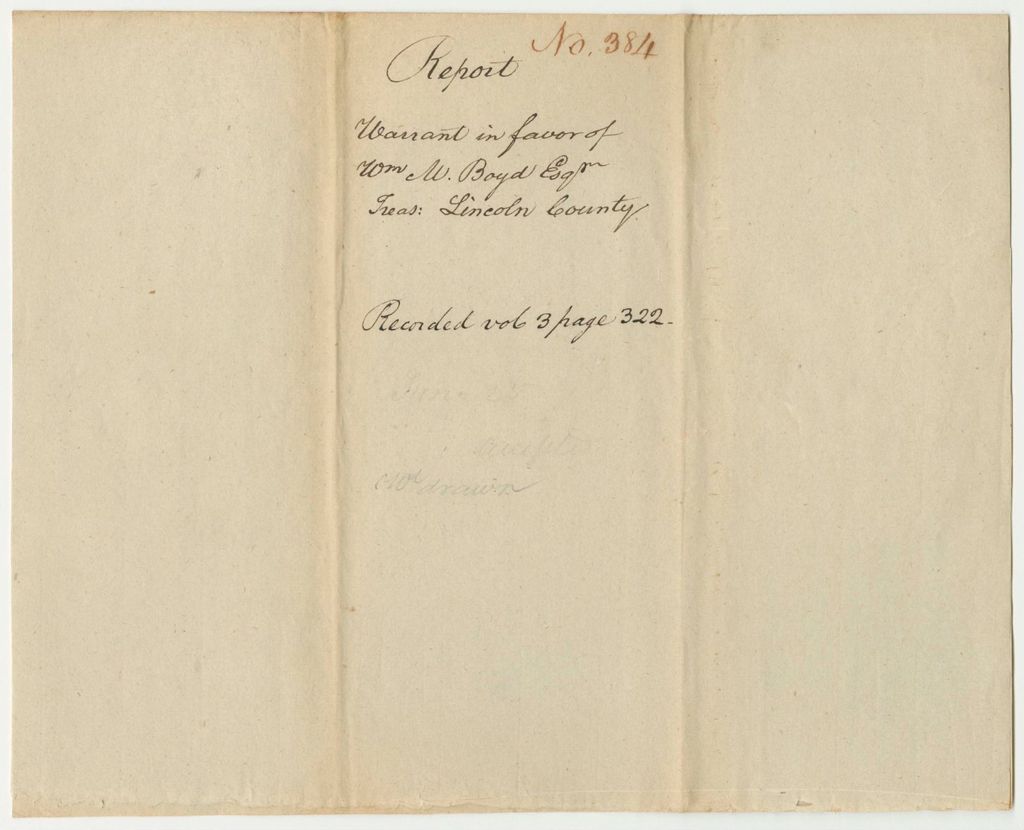 No. 384
Report
Warrant in favor of
Wm M. Boyd Esqr
Treas: Lincoln County
Recorded vol 3 page 322-
25
accepted
Wt drawn